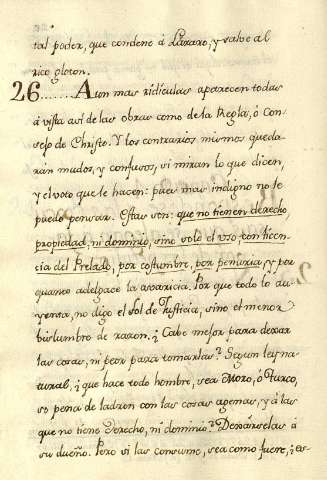 tal poder, que condene á Lazaro, y salve al
rico gloton.
26....... Aun mas ridiculas aparecen todas
á vista asi de las obras como de la Regla, ó Con-
sejo de Christo. Y los contrarios mismos queda-
ran mudos, y confusos, si miran lo que dicen,
y el voto que le hacen: pues mas indigno no le
puedo pensar. Estas son: que no tienen derecho,
propiedad, ni dominio, sino solo el uso con licen-
cia del Prelado, por costumbre, por penuria, y por
quanto adelgace la avaricia. Por que todo lo
vensa, no digo el Sol de Justicia, sino el menor
bislumbre de razon. ¿Cabe mejor para dexar
las cosas, ni peor para tomarlas? Segun ley na-
tural, ¿que hace todo hombre, sea Moro, ó Turco,
so pena de ladron con las cosas agenas, y á las
que no tiene derecho, ni dominio? Demanselas á
su dueño. Pero si las consume, sea como fuere, ¿es-